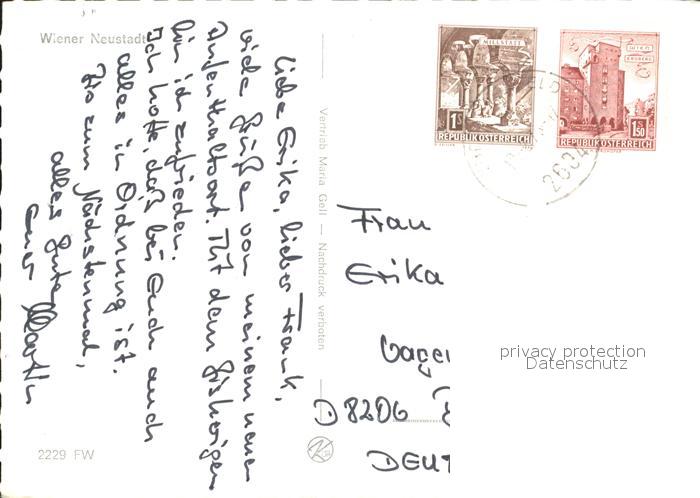 Wiener Neustadt
Liebe Erika, lieber Frank,
viele Grüße von meinem neuen
Aufenthaltsort. Mit dem Bisherigen
bin ich zufrieden.
Ich hoffe, daß bei Euch auch
alles in Ordnung ist.
Bis zum Nächstenmal,
alles Gute
Euer Martin
2229 FW
Vertrieb Maria Gell — Nachdruck verboten
MILLSTATT
1S
REPUBLIK ÖSTERREICH
WIEN
1S50
REPUBLIK ÖSTERREICH
Frau
Erika
D 8206
DEUT
privacy protection
Datenschutz